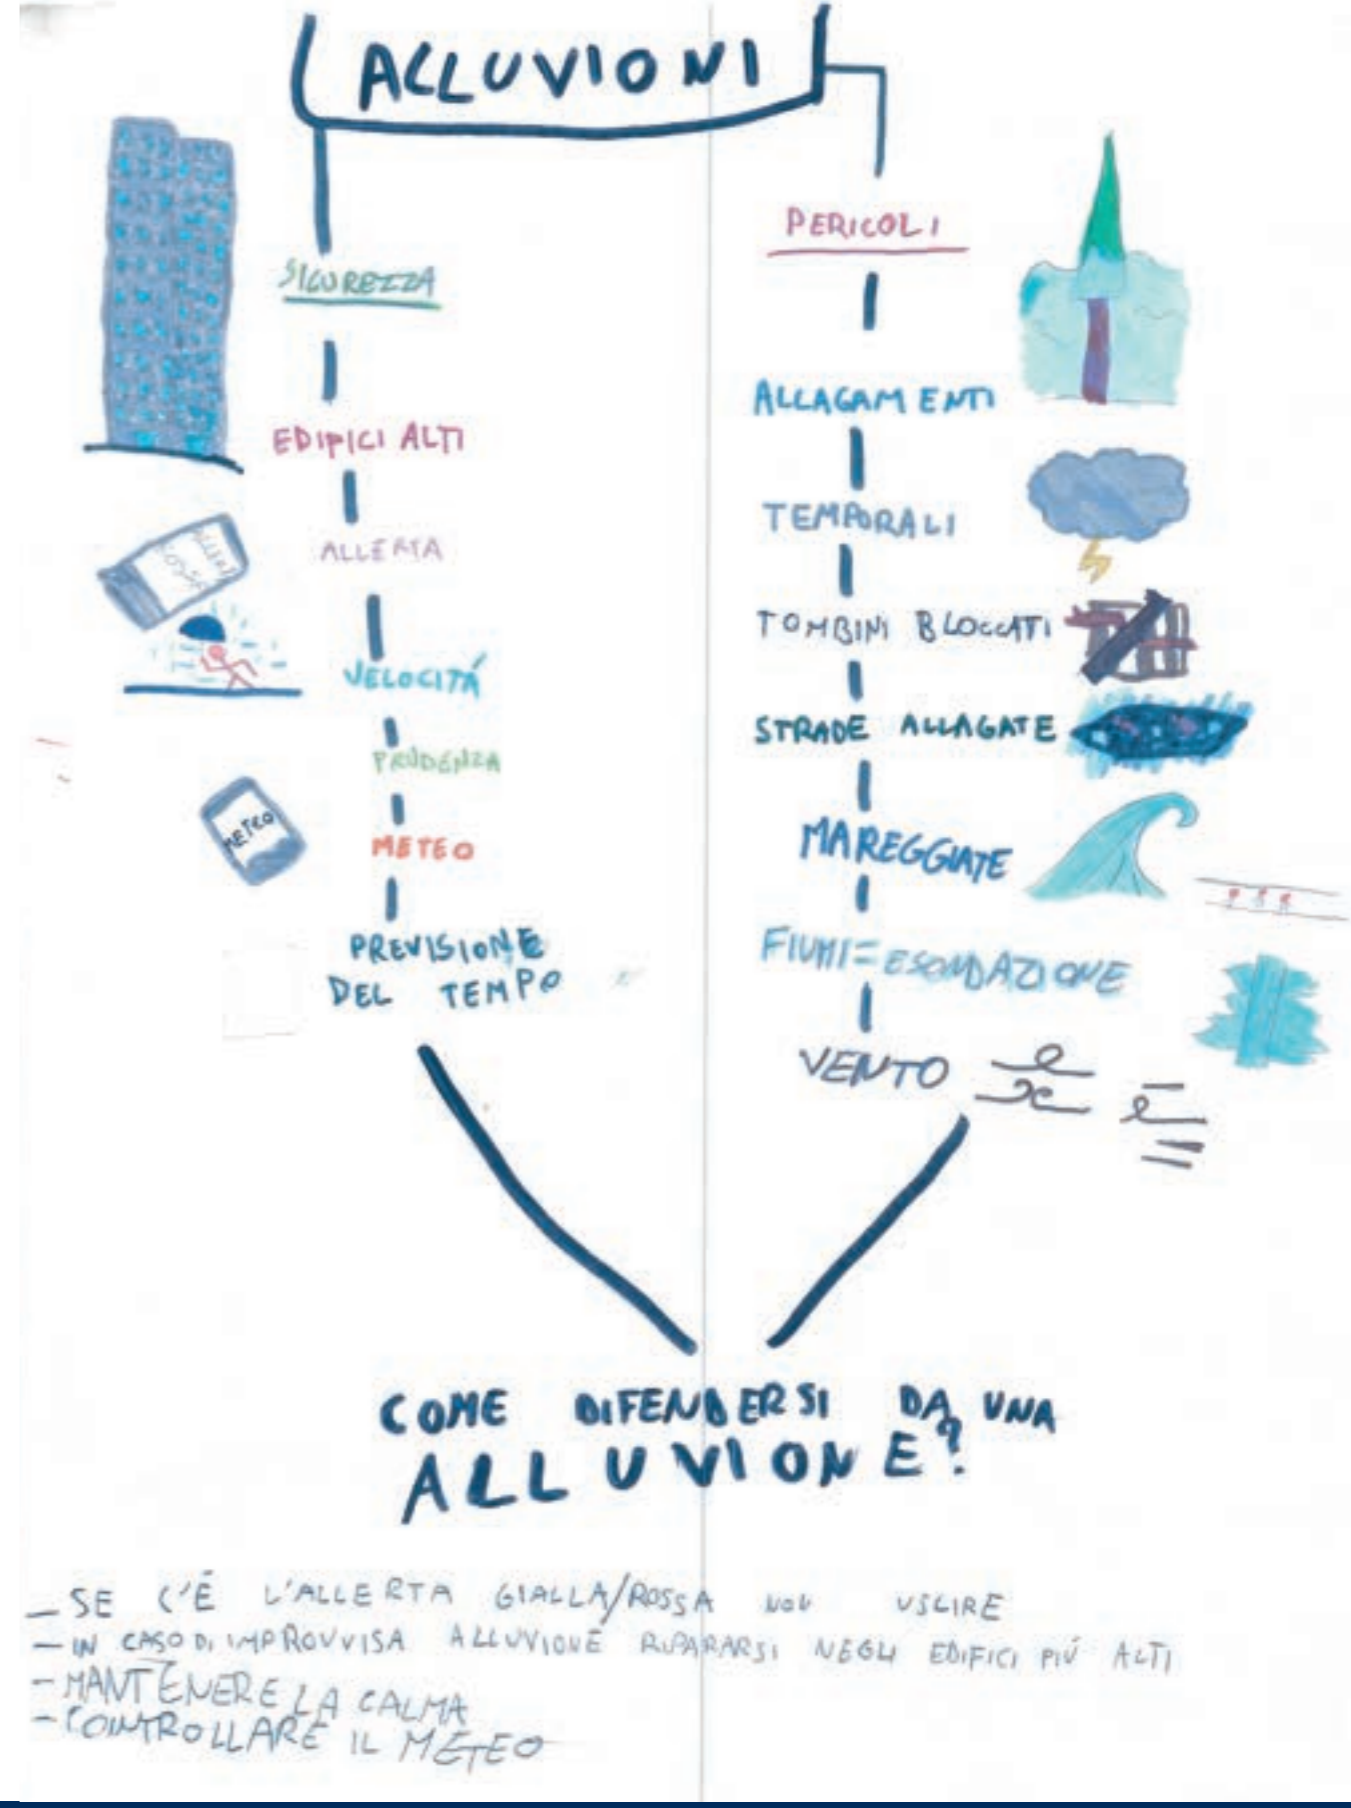 ALLUVIONI
SICUREZZA
EDIFICI ALTI
ALLERTA
VELOCITÁ
PRUDENZA
METEO
METEO
PREVISIONE
DEL TEMPO
PERICOLI
ALLAGAMENTI
TEMPORALI
TOMBINI BLOCCATI
STRADE ALLAGATE
MAREGGIATE
FIUMI=ESONDAZIONE
VENTO
COME DIFENDERSI DA UNA
ALLUVIONE?
- SE C'É L'ALLERTA GIALLA/ROSSA NON USCIRE
- IN CASO DI IMPROVVISA ALLUVIONE RIPARARSI NEGLI EDIFICI PIÚ ALTI
- MANTENERE LA CALMA
- CONTROLLARE IL METEO